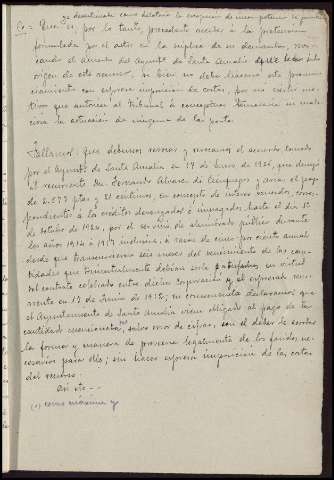 y desestimada como dilatoria la excepción de incompetencia de jurisdicción
Co = Que es, por lo tanto, procedente acceder a la pretensión
formulada por el actor en la súplica de su demanda, revo-
cando el acuerdo del Ayunto de Santa Amalia que ha dado
origen de este recurso, si bien no debe hacerse este pronun-
ciamiento con expresa imposición de costas, por no existir mo-
tivos que autoricen al Tribunal a conceptuar temeraria ni mali-
ciosa la actuación de ninguna de las partes.
Fallamos: Que debemos revocar y revocamos el acuerdo tomado
por el Ayunto de Santa Amalia en 17 de Enero de 1926, que denegó
al recurrente Dn. Servando Alvarez de Cienfuegos y Aria, el pago
de 2.577 ptas y 81 céntimos, en concepto de interés vencidos, corres-
pondientes a los créditos devengados é impagados, hasta el día 1º
de Octubre de 1924, por el servicio de alumbrado público durante
los años 1914 a 1917 inclusive, a razón de cinco por ciento anual
desde que transcurrieron seis meses del vencimiento de las can-
tidades que trimestralmente debían serle satisfechas, en virtud
del contrato celebrado entre dicha Corporación y el expresado recu-
rrente en 17 de Junio de 1912; en consecuencia declaramos que
el Ayuntamiento de Santa Amalia viene obligado al pago de tal
cantidad mencionada, salvo error de cifras, con el deber de acordar
la forma y manera de proveerse legalmente de los fondos ne-
cesarios para ello; sin hacer expresa imposición de las costas
del recurso.
Así etc - -
(1) como máximo y